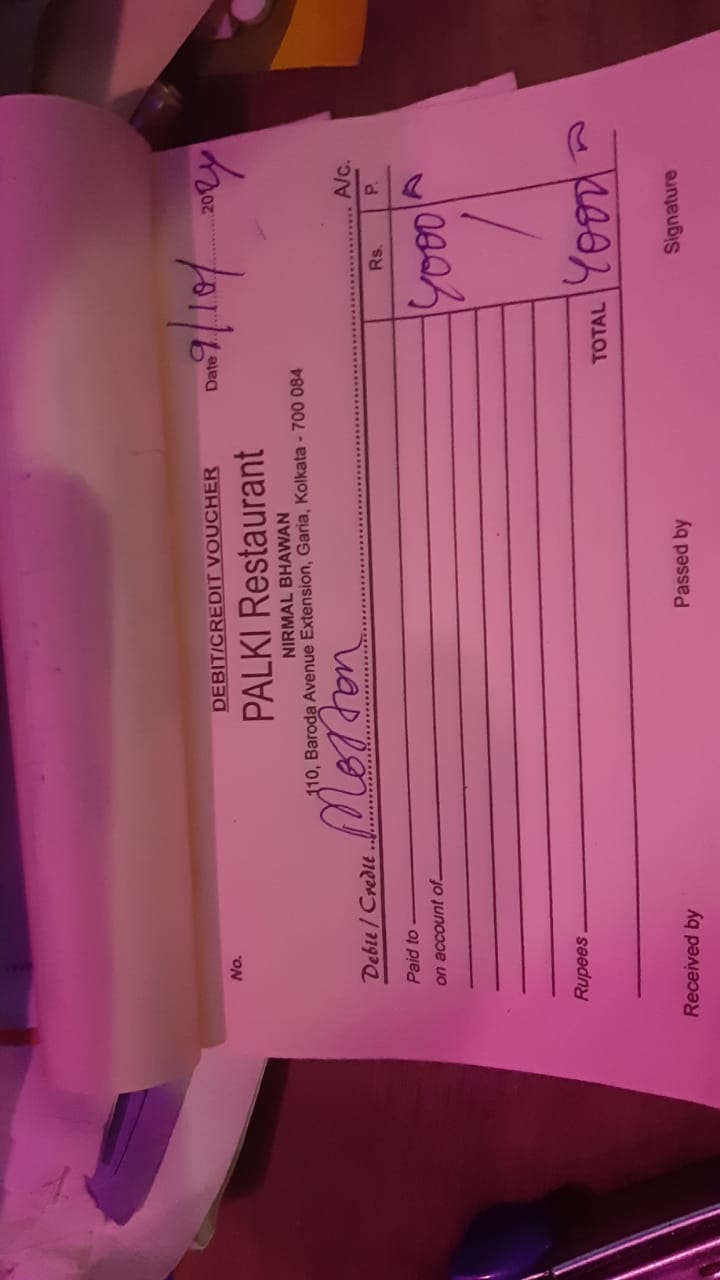 DEBIT/CREDIT VOUCHER
PALKI Restaurant
NIRMAL BHAWAN
110, Baroda Avenue Extension, Garia, Kolkata - 700 084
No.
Date 9/10/ 2024
Debit / Credit A/c.
Rs. P.
Paid to 4000
on account of
Rupees TOTAL 4000
Received by Passed by Signature